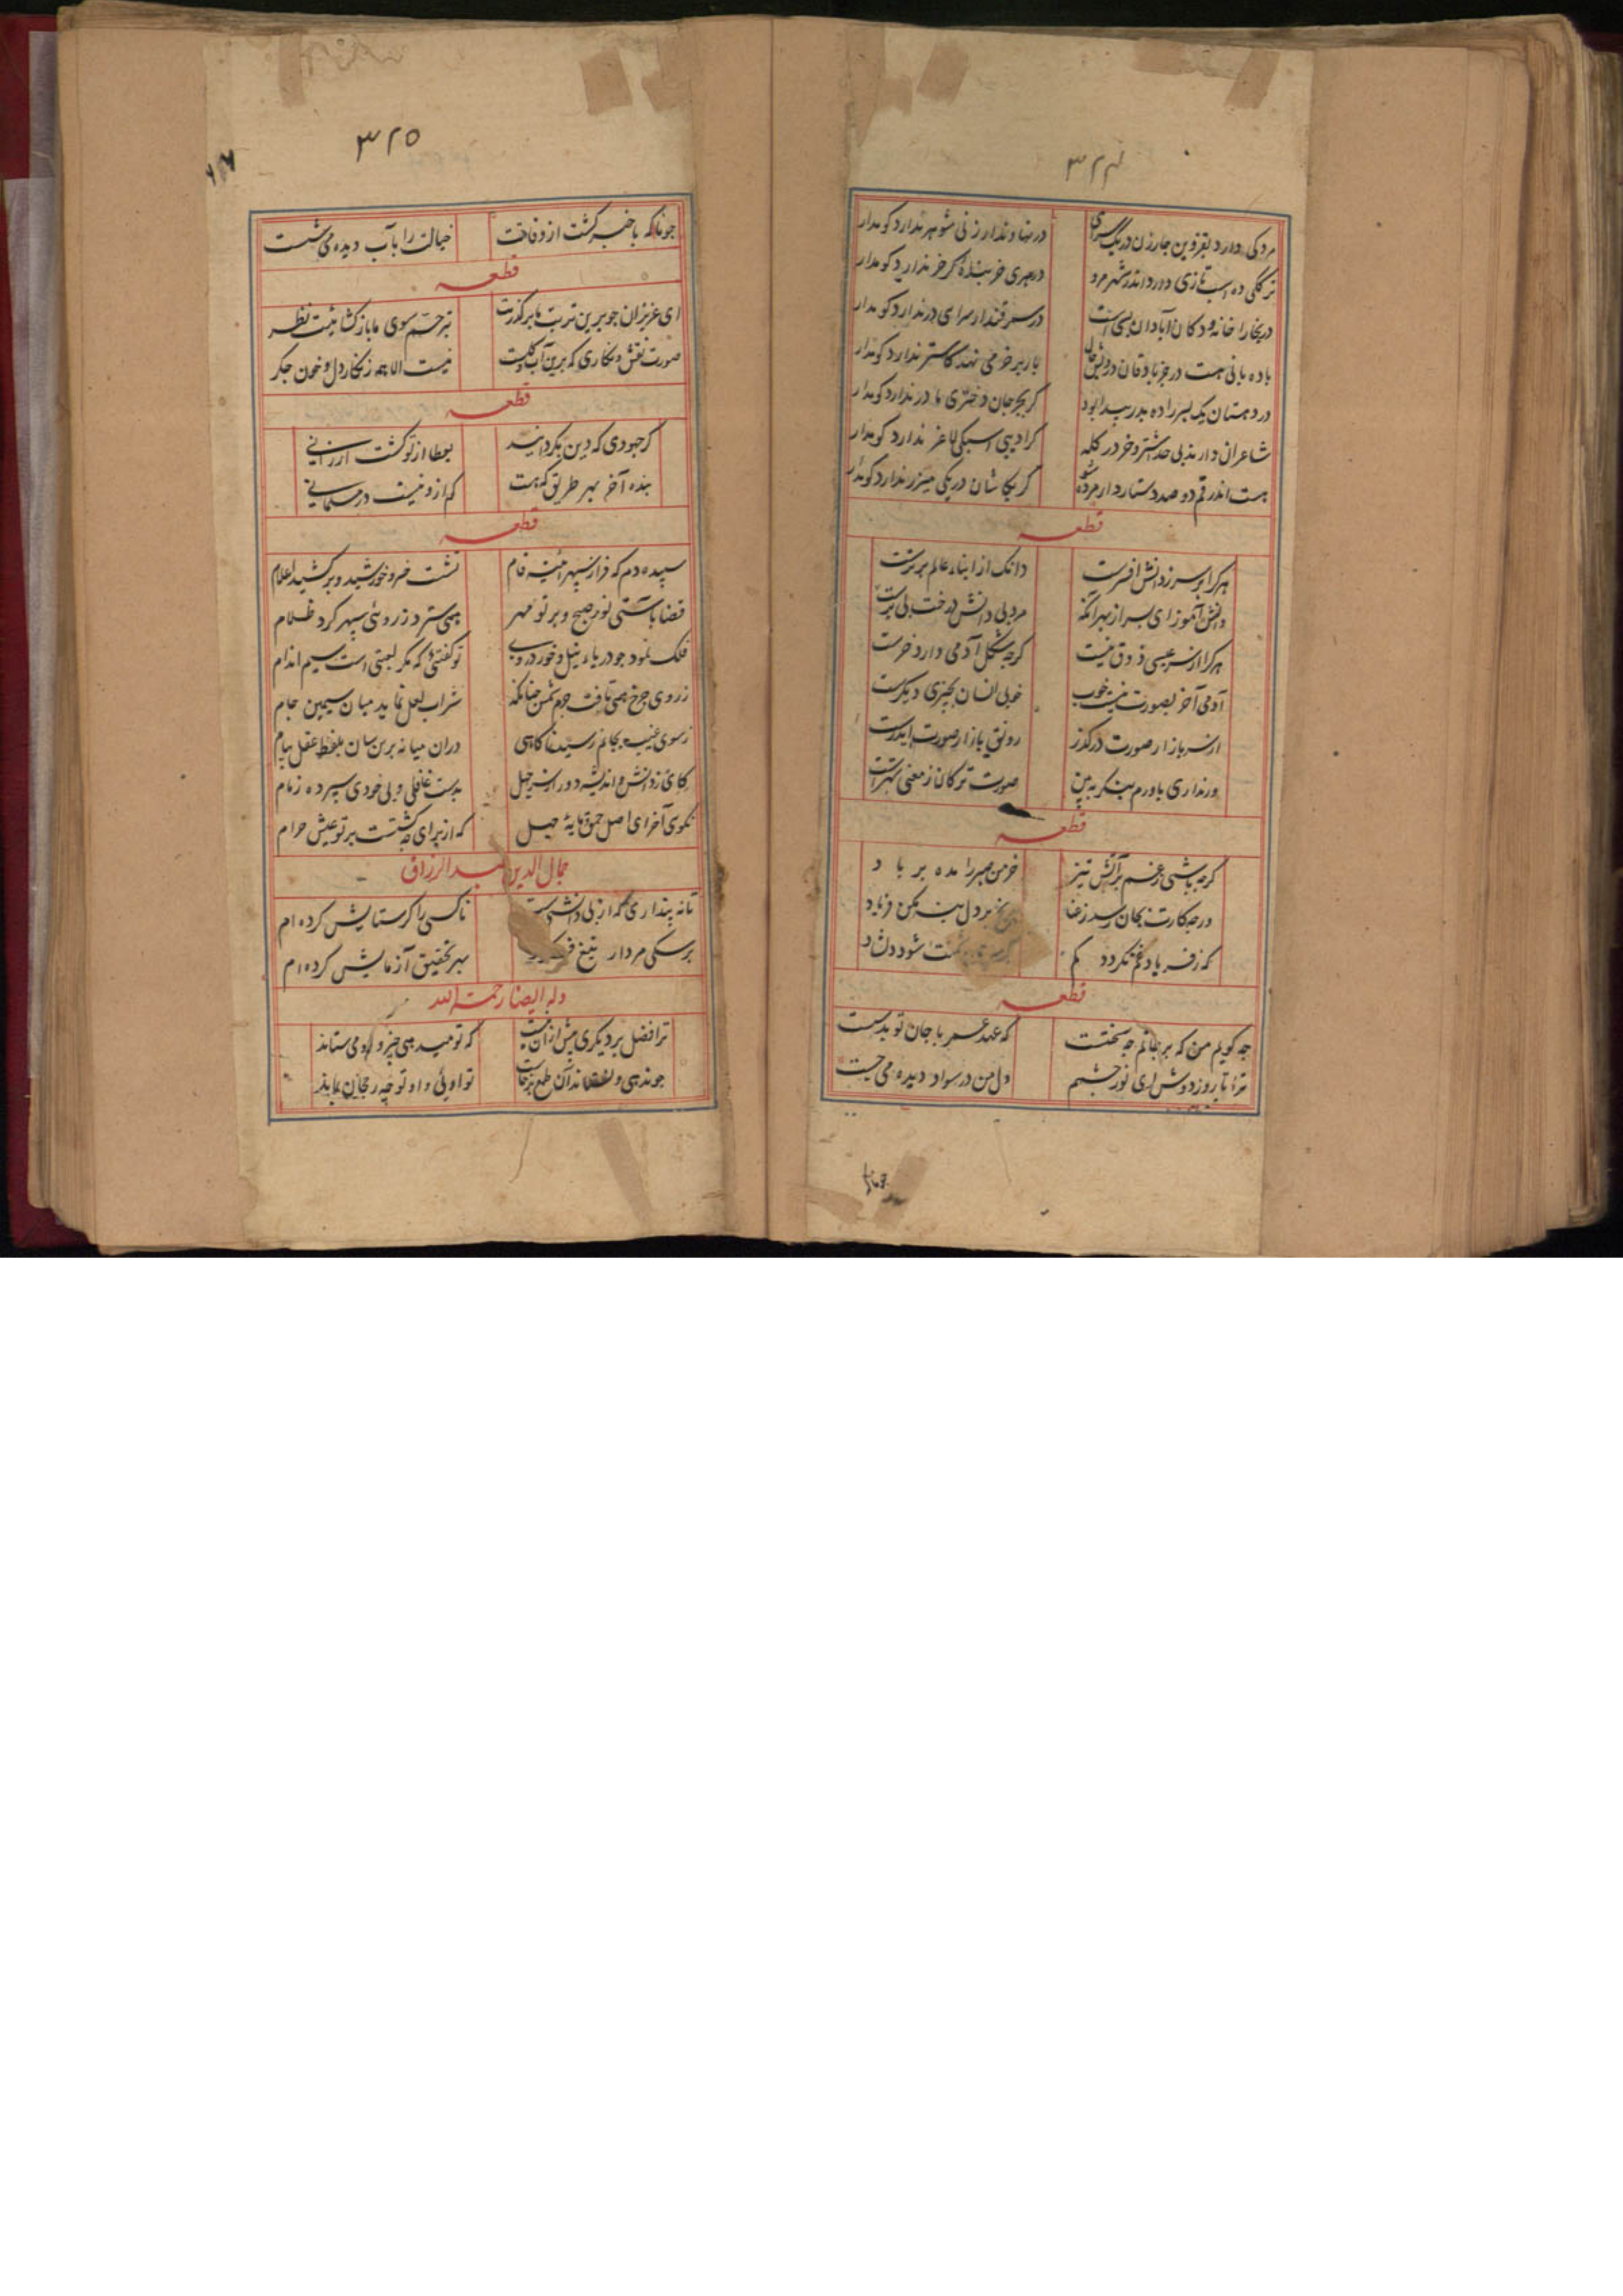 ۳۲۴
مردکی دارد بقزوین چار زن در یک سرای
در نهاوند ار زنی شوهر ندارد کو مدار
ترککی ده اسب تازی دارد اندر شهر مرو
در هری خربنده گر خر ندارد کو مدار
در بخارا خانه و دکان آبادان بسی است
در سمرقند ار سرای در ندارد کو مدار
باده بانی هست در
بار بر خر می نهد کاستر ندارد کو مدار
در دهستان یک پسر زاده پدر پیدا نبود
گر بجرجان دختری مادر ندارد کو مدار
شاعران دارند بلی صد اشتر و خر در گله
گر ادیبی اسبکی لاغر ندارد کو مدار
هست اندر قم دو صد دستار دار مرده شو
گر بکاشان در یکی میزر ندارد کو مدار
قطعه
هر کرا بر سر ز دانش افسرست
دانک از ابناء عالم برترست
دانش آموز ای پسر از بهر آنکه
مرد بی دانش درخت بی برست
هر کرا از سر عیسی ذوق نیست
گرچه شکل آدمی دارد خرست
آدمی آخر بصورت نیست خوب
خوبی انسان بچیزی دیگرست
از سر بازار صورت در گذر
رونق بازار صورت
ور نداری باورم بنگر ببین
صورت ترکان ز معنی
قطعه
گرچه باشی ز غم بر آتش تیز
خرمن صبر را مده بر باد
ور چه کارت بجان رسد ز عنا
بر دل منه مکن فریاد
که ز فریاد غم نگردد کم
شود دلشاد
قطعه
چه گویم من که بر جانم چه سختست
که عهد عمر با جان تو بدست
ترا تا روز دوش ای نور چشم
دل من در سواد دیده می جست
۳۲۵
چو ناگه با خبر گشت از وفاقت
خیالت را بآب دیده می شست
قطعه
ای عزیزان چو برین تربت ما برگذرید
بترحم سوی ما باز گشائیت نظر
صورت نقش و نگاری که برین
نیست الا همه زنگار دل و خون جگر
قطعه
گر جهودی که دین بگرداند
بعطا از تو گشت ارزانی
بنده آخر بهر طریق که هست
کم ازو نیست در مسلمانی
قطعه
سپیده دم که فراز سپهر آئینه فام
نشست خسرو خورشید و برکشید اعلام
قضا باستی نور صبح و پرتو مهر
همی سترد ز روی سپهر گرد ظلام
فلک نمود چو دریاء نیل و خور در وی
تو گفتئی که مگر لعبتی است سیم اندام
ز روی چرخ همی تافت جرم شمس چنانکه
شراب لعل نماید میان سیمین جام
ز سوی غیب بجانم رسید ناگاهی
در آن میانه برین سان بلفظ عقل پیام
که ای ز دانش و اندیشه دور از سر جهل
بدست غافلی و بی خودی سپرده زمام
نگوی آخر ای اصل حمق و مایه جهل
که از برای چه گشتست بر تو عیش حرام
جمال الدین عبد الرزاق
تا نه پنداری که از بی دانشیست
ناکسی را گر ستایش کرده ام
بر سگی مردار تیغ
بهر تحقیق آزمایش کرده ام
وله ایضا رحمة الله
ترا فضل بر دیگری بیش از آن نیست
که تو میدهی چیز و او می ستاند
چو ندهی و نستاند آن طمع برخاست
تو اوئی و او تو چه رجحان نماید